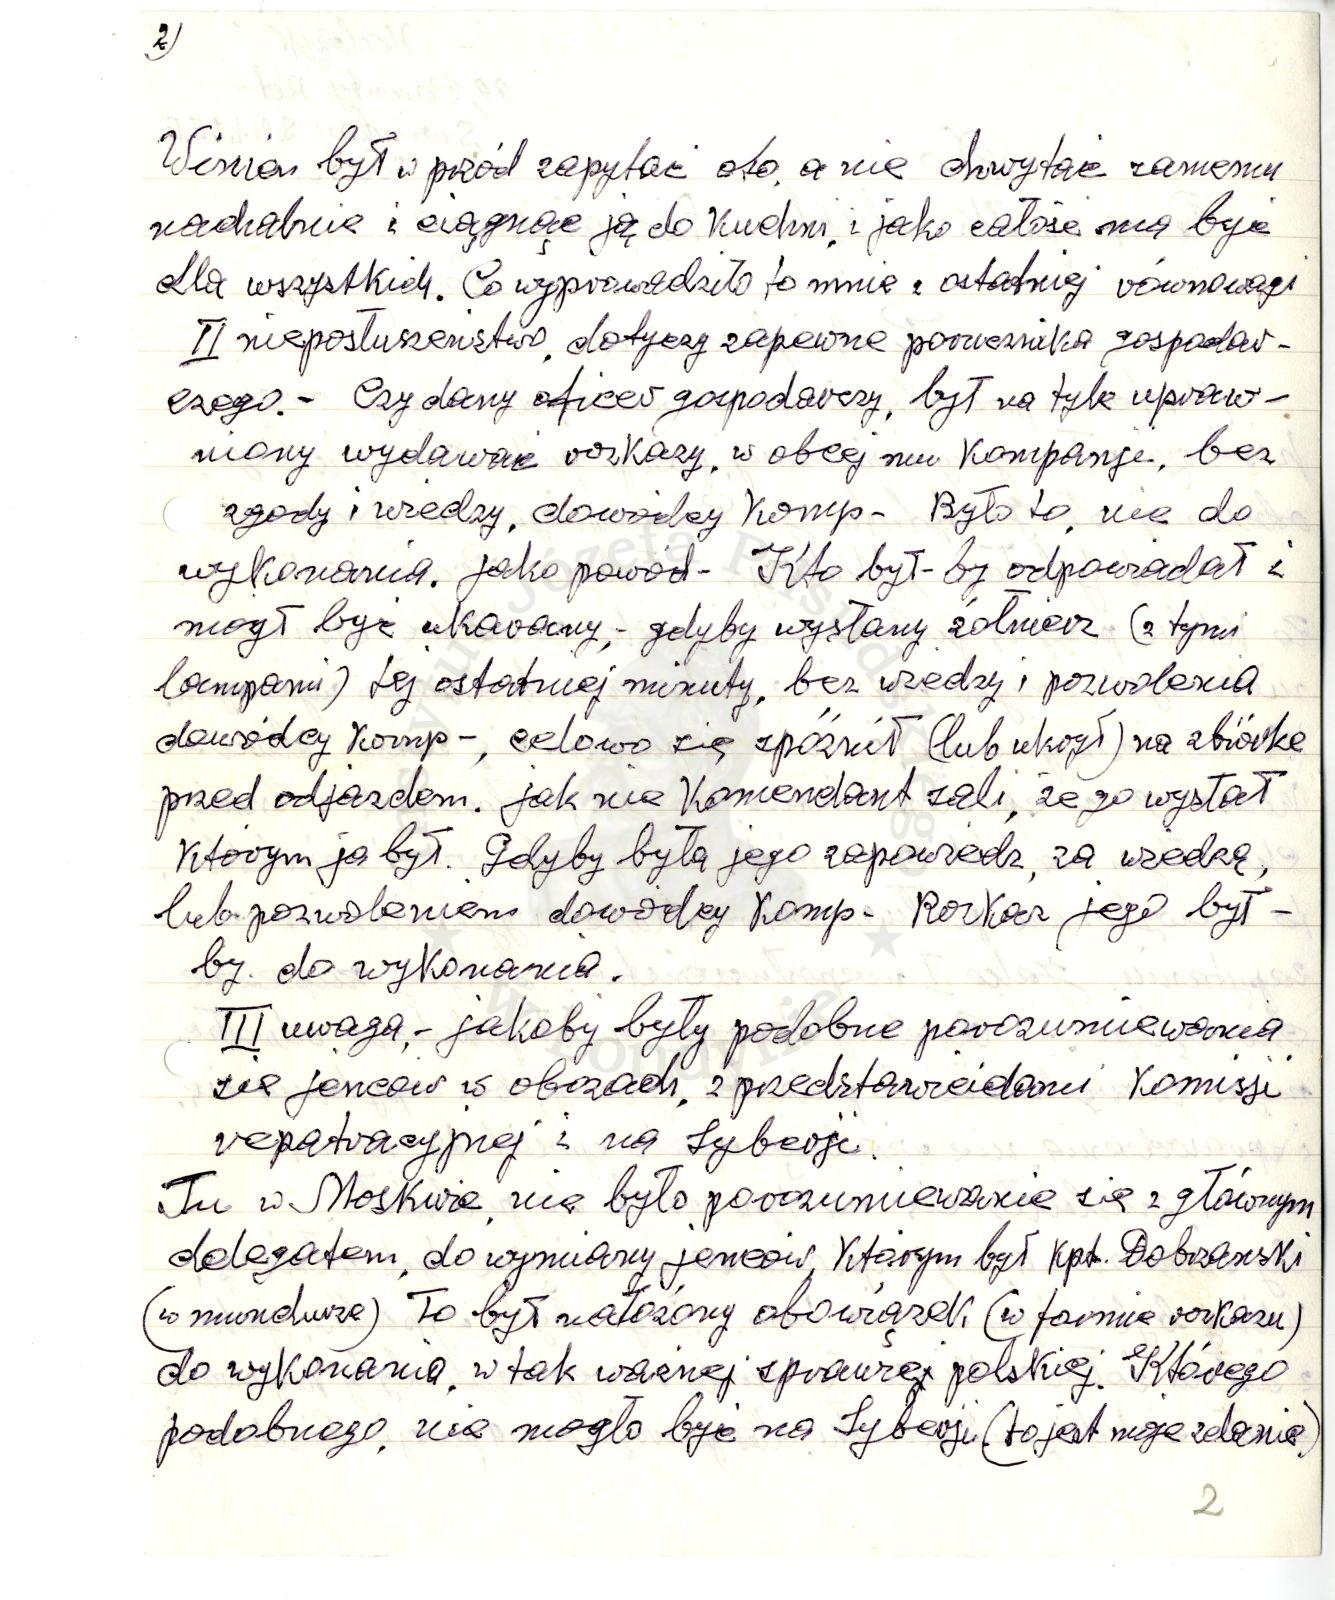 2)
Winien był w przód zapytać oto, a nie chwytać samemu
nachalnie i ciągnąć ją do Kuchni, i jako całość ma być
dla wszystkich. Co wyprowadziło to mnie z ostatniej równowagi
II nieposłuszeństwo, dotyczy zapewne porucznika gospodar-
czego. - Czy dany oficer gospodarczy, był na tyle upraw-
niony wydawać rozkazy, w obcej mu Kompanji, bez
zgody i wiedzy, dowódcy Komp- Było to, nie do
wykonania. jako powód- Kto był-by odpowiadał i
mógł być ukarany, - gdyby wysłany żółnierz (z tymi
lampami) tej ostatniej minuty, bez wiedzy i pozwolenia
dowódcy Komp-, celowo się spóźnił (lub ukrył) na zbiórkę
przed odjazdem. jak nie Komendant sali, że go wysłał
Którym ja był. Gdyby była jego zapowiedz, za wiedzą,
lub pozwoleniem dowódcy Komp- Rozkaz jego był-
by. do wykonania.
III uwaga, - jakoby były podobne porozumiewania
się jenców w obozach, z przedstawicielami Komisji
repatracyjnej i na Syberji.
Tu w Moskwie, nie było porozumiewanie się z głównym
delegatem, do wymiany jenców, Którym był Kpt. Dobrzanski
(w mundurze) To był nałożony obowiązek, (w formie rozkazu)
do wykonania, w tak ważnej sprawiej polskiej. Którego
podobnego, nie mogło być na Syberji, (to jest moje zdanie)
2
Józefa Piłsudskiego